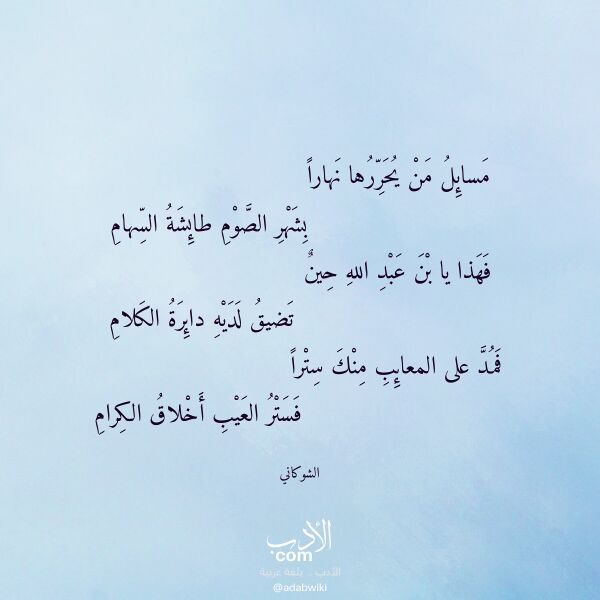 مَسايِلُ مَنْ يُحَرِّرُها نَهاراً
بِشَهْرِ الصَّوْمِ طايِشَةُ السِّهامِ
فَهَذا يا بْنَ عَبْدِ اللهِ حِينٌ
تَضيقُ لَدَيْهِ دايِرَةُ الكَلامِ
فَمُدَّ على المعايِبِ مِنْكَ سِتْراً
فَسَتْرُ العَيْبِ أَخْلاقُ الكِرامِ
الشوكاني
الأدب
com
الأدب .. بلغة عربية
@adabwiki